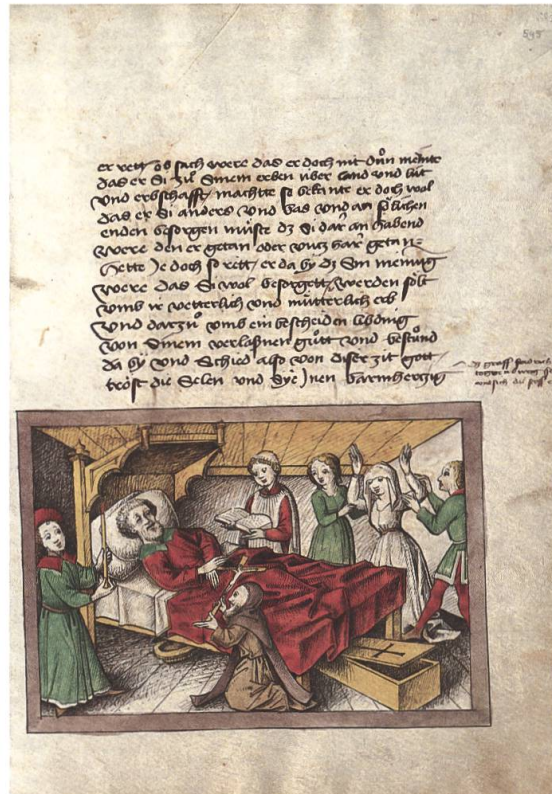 er rett ob sach were das er doch nit dûn meinte
das er si zů sinem erben úber land und lút
und erbschafft machtte so bekante er doch wol
das er si anders und bas und an sőlichen
enden besorgen můste dz si dar an habend
were den er getan oder untz har getan
hette Je doch so rett er da by dz sin meinung
were das si wol besorgett werden sőlt
umb ir vetterlich und můtterlich erb
und darzů umb ein bescheiden libding
von sinem verlaßnen gůtt und bestůnd
da by und schied also von diser zit gott
trőst die selen und sye Jnen barmherzig
graff